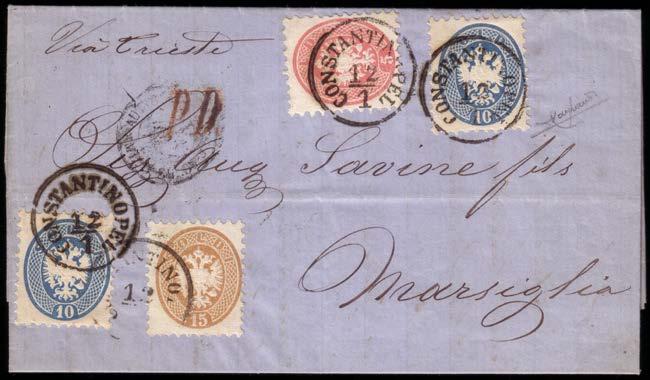 Via Trieste
5
CONSTANTINOPEL
12
1
CONSTANTINOPEL
12
10
P.D.
Aug Savine fils
CONSTANTINOPEL
12
1
10
12
15
Marsiglia